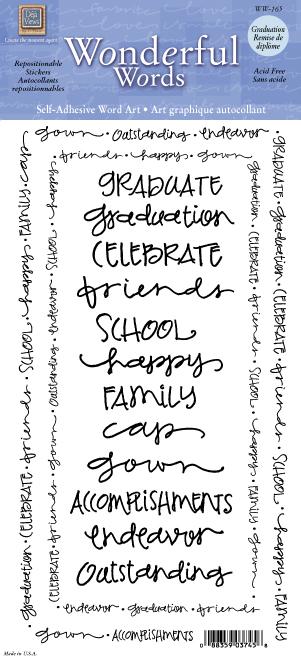 Déjà Views
Create the moment again
WW-365
Wonderful
Words
Graduation
Remise de
diplôme
Repositionable
Stickers
Autocollants
repositionnables
Acid Free
Sans acide
Self-Adhesive Word Art • Art graphique autocollant
gown • Outstanding • endeavor •
• friends • happy • gown
GRADUATE
graduation
CELEBRATE
friends
SCHOOL
happy
FAMILY
cap
gown
ACCOMPLISHMENTS
endeavor
Outstanding
• endeavor • graduation • friends
gown • ACCOMPLISHMENTS
graduation • CELEBRATE • friends • SCHOOL • happy • FAMILY •
CELEBRATE • friends • gown • Outstanding • endeavor • SCHOOL • happy
graduation • CELEBRATE • friends • SCHOOL • happy • FAMILY • gown •
GRADUATE • graduation • CELEBRATE • friends • SCHOOL • happy • FAMILY
0 88359 03745 8
Made in U.S.A.